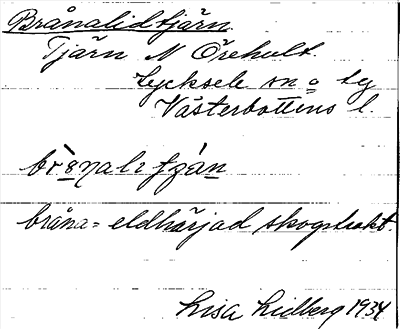 Brånalidtjärn.
Tjärn N Örehult.
Lycksele sn o lg
Västerbottens l.
bråna = eldhärjad skogstrakt.
Lisa Lidberg 1934